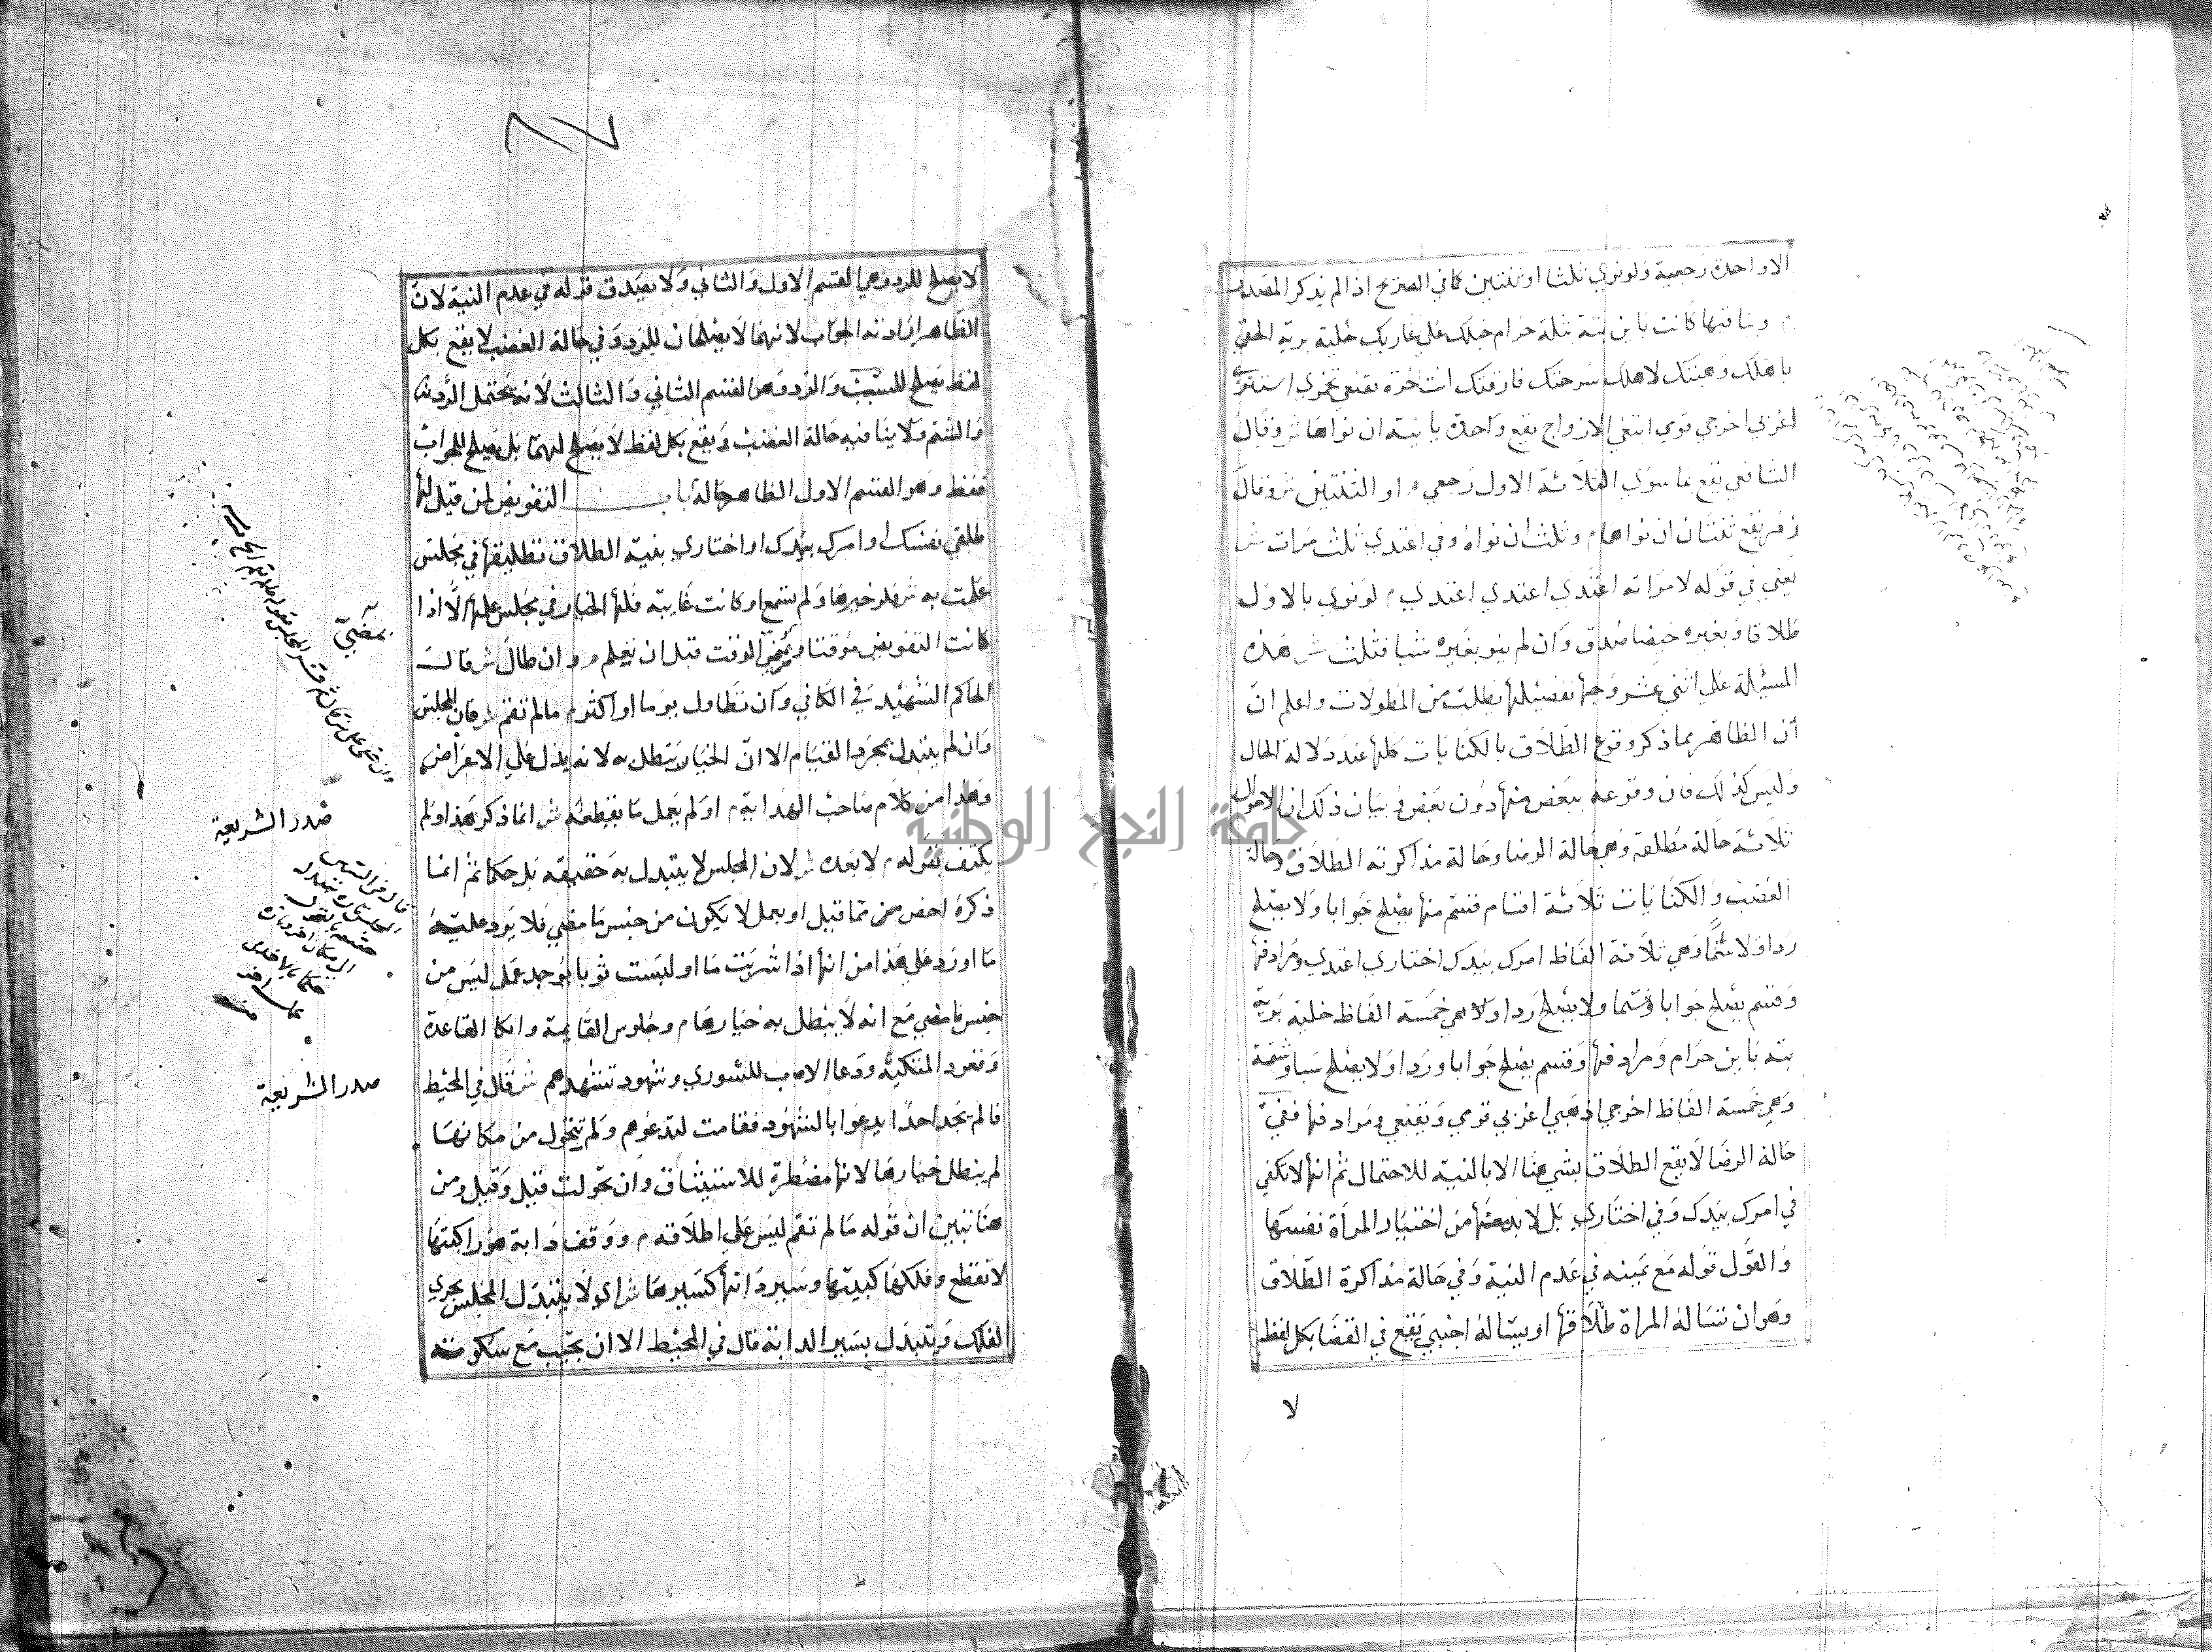 الا واحدة رجعية ولو نوي ثلثا او ثنتين كما في الصريح اذا لم يذكر المصدر
م وبباقيها كانت باين بتة بتلة حرام حبلك علي غاربك خلية برية الحقي
باهلك وهبتك لاهلك سرحتك فارقتك انت حرة تقنعي تخمري استتري
اغربي اخرجي قومي ابتغي الازواج يقع واحدة باينة ان نواها ش وقال
الشافعي تقع بما سوي الثلاثة الاول رجعي م او الثنتين ش وقال
زفر تقع ثنتان ان نواهما م وثلث ان نواه وفي اعتدي ثلث مرات ش
يعني في قوله لامراته اعتدي اعتدي اعتدي م لو نوي بالاول
طلاقا وبغيره حيضا صدق وان لم ينو بغيره شيا فثلث ش هذه
المسيلة علي اثني عشر وجها تفصيلها يطلب من المطولات واعلم انّ
أن الظاهر مما ذكر وقوع الطلاق بالكنايات كلها عند دلالة الحال
وليس كذلك فان وقوعه ببعض منها دون بعض وبيان ذلك ان الاحوال
ثلاثة حالة مطلقه وهي حالة الرضا وحالة مذاكرته الطلاق وحالة
الغضب والكنايات ثلاثة اقسام قسم منها يصلح جوابا ولا يصلح
ردا ولا شتما وهي ثلاثة الفاظ امرك بيدك اختاري اعتدي ومرادفها
وقسم يصلح جوابا وشتما ولا يصلح ردا ولا هي خمسة الفاظ خلية برية
بتة باين حرام ومرادفها وقسم يصلح جوابا وردا ولا يصلح سبا وشتمة
وهي خمسة الفاظ اخرجي اذهبي اغربي قومي وتقنعي ومرادفها ففي
حالة الرضا لا يقع الطلاق بشي هنا الا بالنية للاحتمال ثم انها لا تكفي
في امرك بيدك وفي اختاري بل لا بد معها من اختيار المرأة نفسها
والقول قوله مع يمينه في عدم النية وفي حالة مذاكرة الطلاق
وهو ان تساله المراة طلاقها او يساله اجنبي يقع في القضا بكل لفظ
لا
٨٧
لا يصلح للرد وهي القسم الاول والثاني ولا يصدق قوله في عدم النية لانّ
الظاهر ارادته الجواب لانهما لا يصلحان للرد وفي حالة الغضب لا يقع بكل
لفظ يصلح للسبب والرد وهو القسم الثاني والثالث لانه يحتمل الرد
والشتم ولا ينافيه حالة الغضب ويقع بكل لفظ لا يصلح لهما بل يصلح للجواب
فقط وهو القسم الاول الظاهر حاله باب التفويض لمن قيل لها
طلقي نفسك او امرك بيدك او اختاري بنية الطلاق تطليقها في مجلس
علمت به ش فلو خيرها ولم يسمع او كانت غايبة فلها الخيار في مجلس علمها الّا اذا
كانت التفويض موقتا ويمضي الوقت قبل ان تعلم م وان طال ش قال
الحاكم الشهيد في الكافي وان تطاول يوما او اكثر م ما لم تقم ش فان المجلس
وان لم يتبدل بمجرد القيام الا انّ الخيار يبطل به لانه يدل علي الاعراض
وهذا من كلام صاحب الهداية م او لم يعمل ما يقطعه ش انما ذكر هذا ولم
يكتف بقوله م لا بعده ش لان المجلس لا يتبدل به حقيقة بل حكما ثم انما
ذكره احص من مما قيل او بعمل لا يكون من جنس ما مضي فلا يرد عليه
ما اورد علي هذا من انها اذا شربت ما او لبست ثوبا يوجد عمل ليس من
جنس ما مضي مع انه لا يبطل به خيارها م وجلوس القايمة واتكا القاعدة
وقعود المتكئة ودعا الاب للشوري وشهود تشهدهم ش قال في المحيط
فالم تجد احدا يدعوا بالشهود فقامت لتدعوهم ولم تتحول من مكانها
لم يبطل خيارها لانها مضطرة للاستيثاق وان تحولت قيل وقيل ومن
هنا تبين ان قوله ما لم تقم ليس علي اطلاقه م ووقف دابة هو راكبتها
لا تقطع وفلكها كبيتها وسير دابتها كسيرها ش اي لا يتبدل المجلس بجري
الفلك ويتبدل بسير الدابة قال في المحيط الا ان تجيب مع سكوته
يمضيّ
صدر الشريعة
صدر الشريعة
جامعة النجاح الوطنية